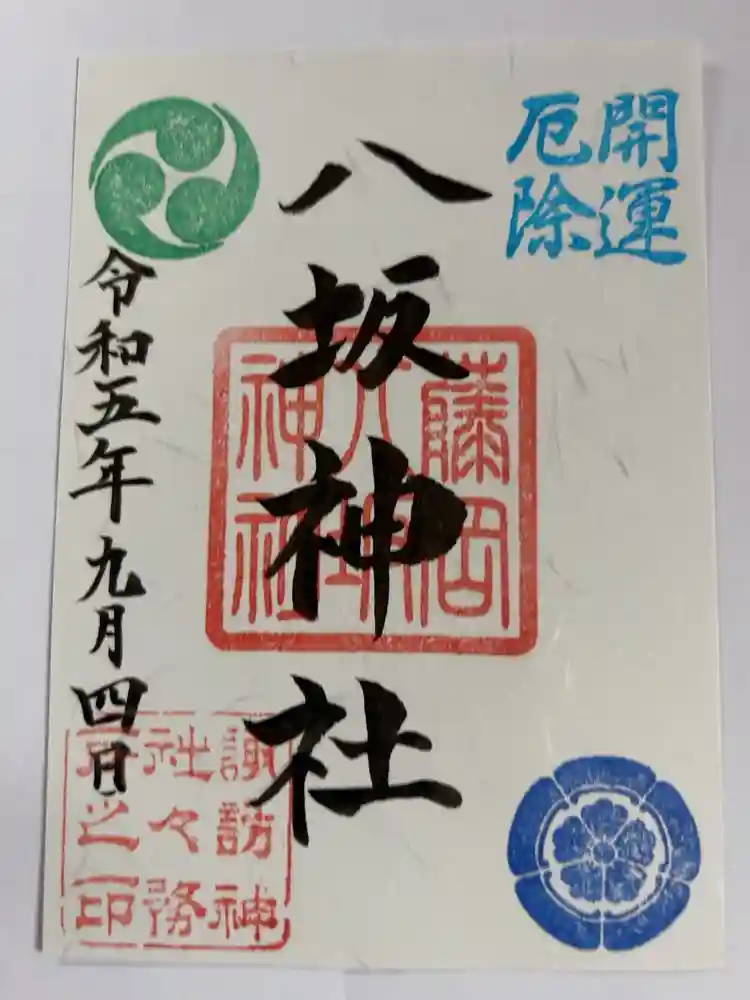 開運
厄除
八坂神社
藤岡
八坂
神社
令和五年九月四日
諏訪神
社々務
所之印